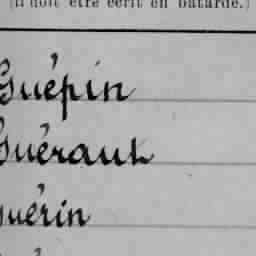 (Il doit être écrit en bâtarde.)
Guépin
Guérault
Guérin